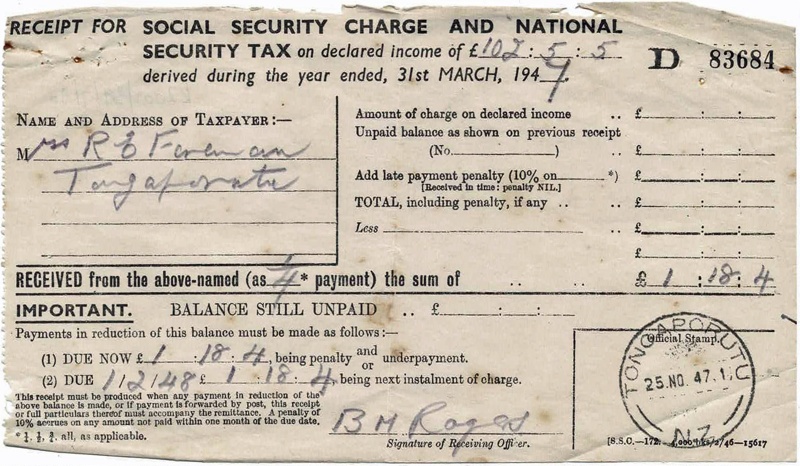 RECEIPT FOR SOCIAL SECURITY CHARGE AND NATIONAL
SECURITY TAX on declared income of £102 : 5 : 5
derived during the year ended, 31ST MARCH, 1947.
D 83684
NAME AND ADDRESS OF TAXPAYER:—
Mrs R E Foreman
Tongaporutu
Amount of charge on declared income .. £ : :
Unpaid balance as shown on previous receipt
(No. ) £ : :
Add late payment penalty (10% on *) £ : :
[Received in time: penalty NIL.]
TOTAL, including penalty, if any .. .. £ : :
Less £ : :
£ : :
RECEIVED from the above-named (as ¼* payment) the sum of .. .. £ 1 : 18 : 4
IMPORTANT. BALANCE STILL UNPAID .. £ : :
Payments in reduction of this balance must be made as follows:—
(1) DUE NOW £ 1 : 18 : 4, being penalty and/or underpayment.
(2) DUE 1/2/48 £ 1 : 18 : 4, being next instalment of charge.
This receipt must be produced when any payment in reduction of the
above balance is made, or if payment is forwarded by post, this receipt
or full particulars thereof must accompany the remittance. A penalty of
10% accrues on any amount not paid within one month of the due date.
* ¼, ½, ¾, all, as applicable.
B H
Signature of Receiving Officer.
Official Stamp.
TONGAPORUTU
25 NO. 47. 1
N.Z.
[S.S.C.—172. /2/46—15617